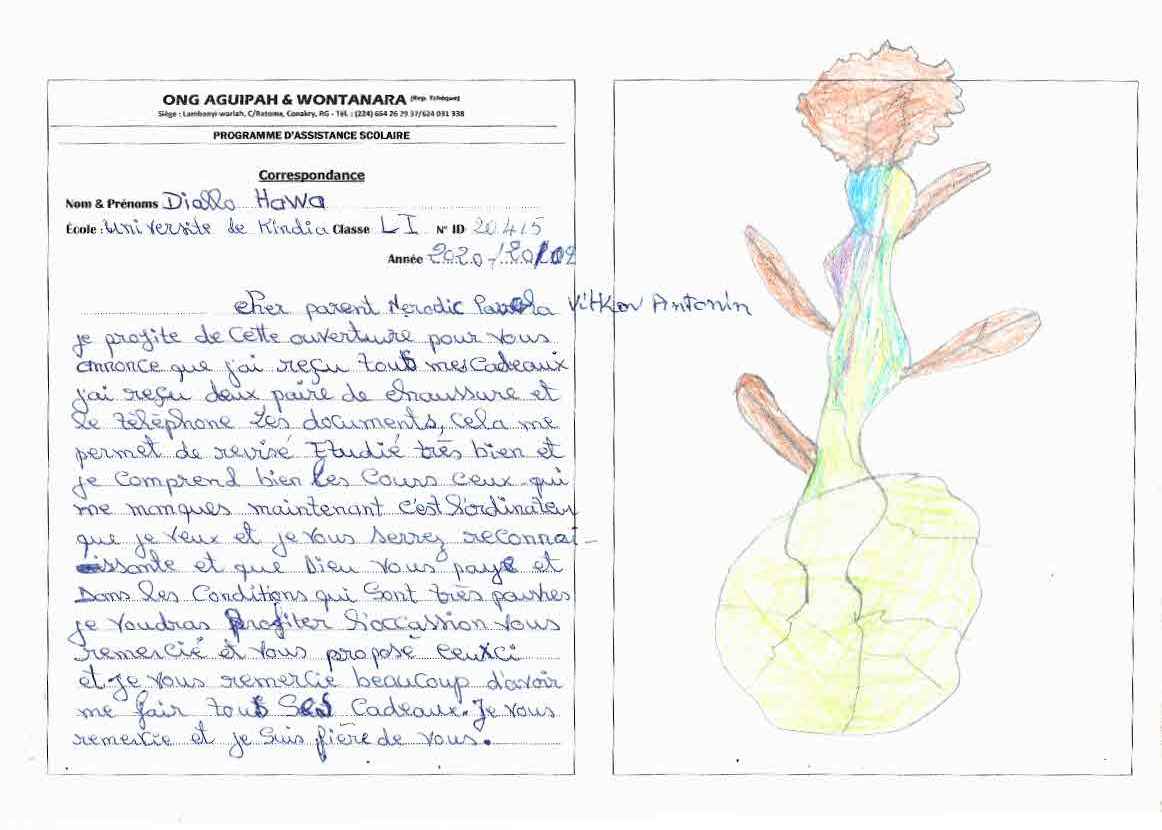 ONG AGUIPAH & WONTANARA (Rep. Tchèque)
Siège : Lambanyi wariah, C/Ratoma, Conakry, RG - Tél. : (224) 664 26 29 37/624 031 338
PROGRAMME D'ASSISTANCE SCOLAIRE
Correspondance
Nom & Prénoms Diallo Hawa
École : Universite de Kindia Classe LI N° ID 20415
Année 2020-/20
cher parent Vitkov Antonin
je profite de cette ouverture pour vous
annonce que j'ai reçu tous mes cadeaux
j'ai reçu deux paire de chaussure et
le téléphone Les documents, cela me
permet de revisé Etudié très bien et
je comprend bien les cours ceux qui
me manques maintenant c'est l'ordinateur
que je veux et je vous serrez reconnai-
issante et que Dieu vous paye et
Dans les conditions qui sont très pauvres
je voudras profiter l'occassion vous
remercié et vous proposé ceuxci
et je vous remercie beaucoup d'avoir
me fair tous ses cadeaux. Je vous
remercie et je suis fière de vous.